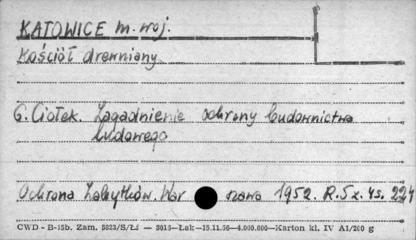 KATOWICE m. woj.
Kościół drewniany
G. Ciołek. Zagadnienie ochrony budownictwa
ludowego
Ochrona Zabytków. War szawa 1952. R.5 z. 4 s. 224
CWD - B-15b. Zam. 5823/S/Łź — 3015—Łak—15.11.56—4.000.000—Karton kl. IV A1/200 g